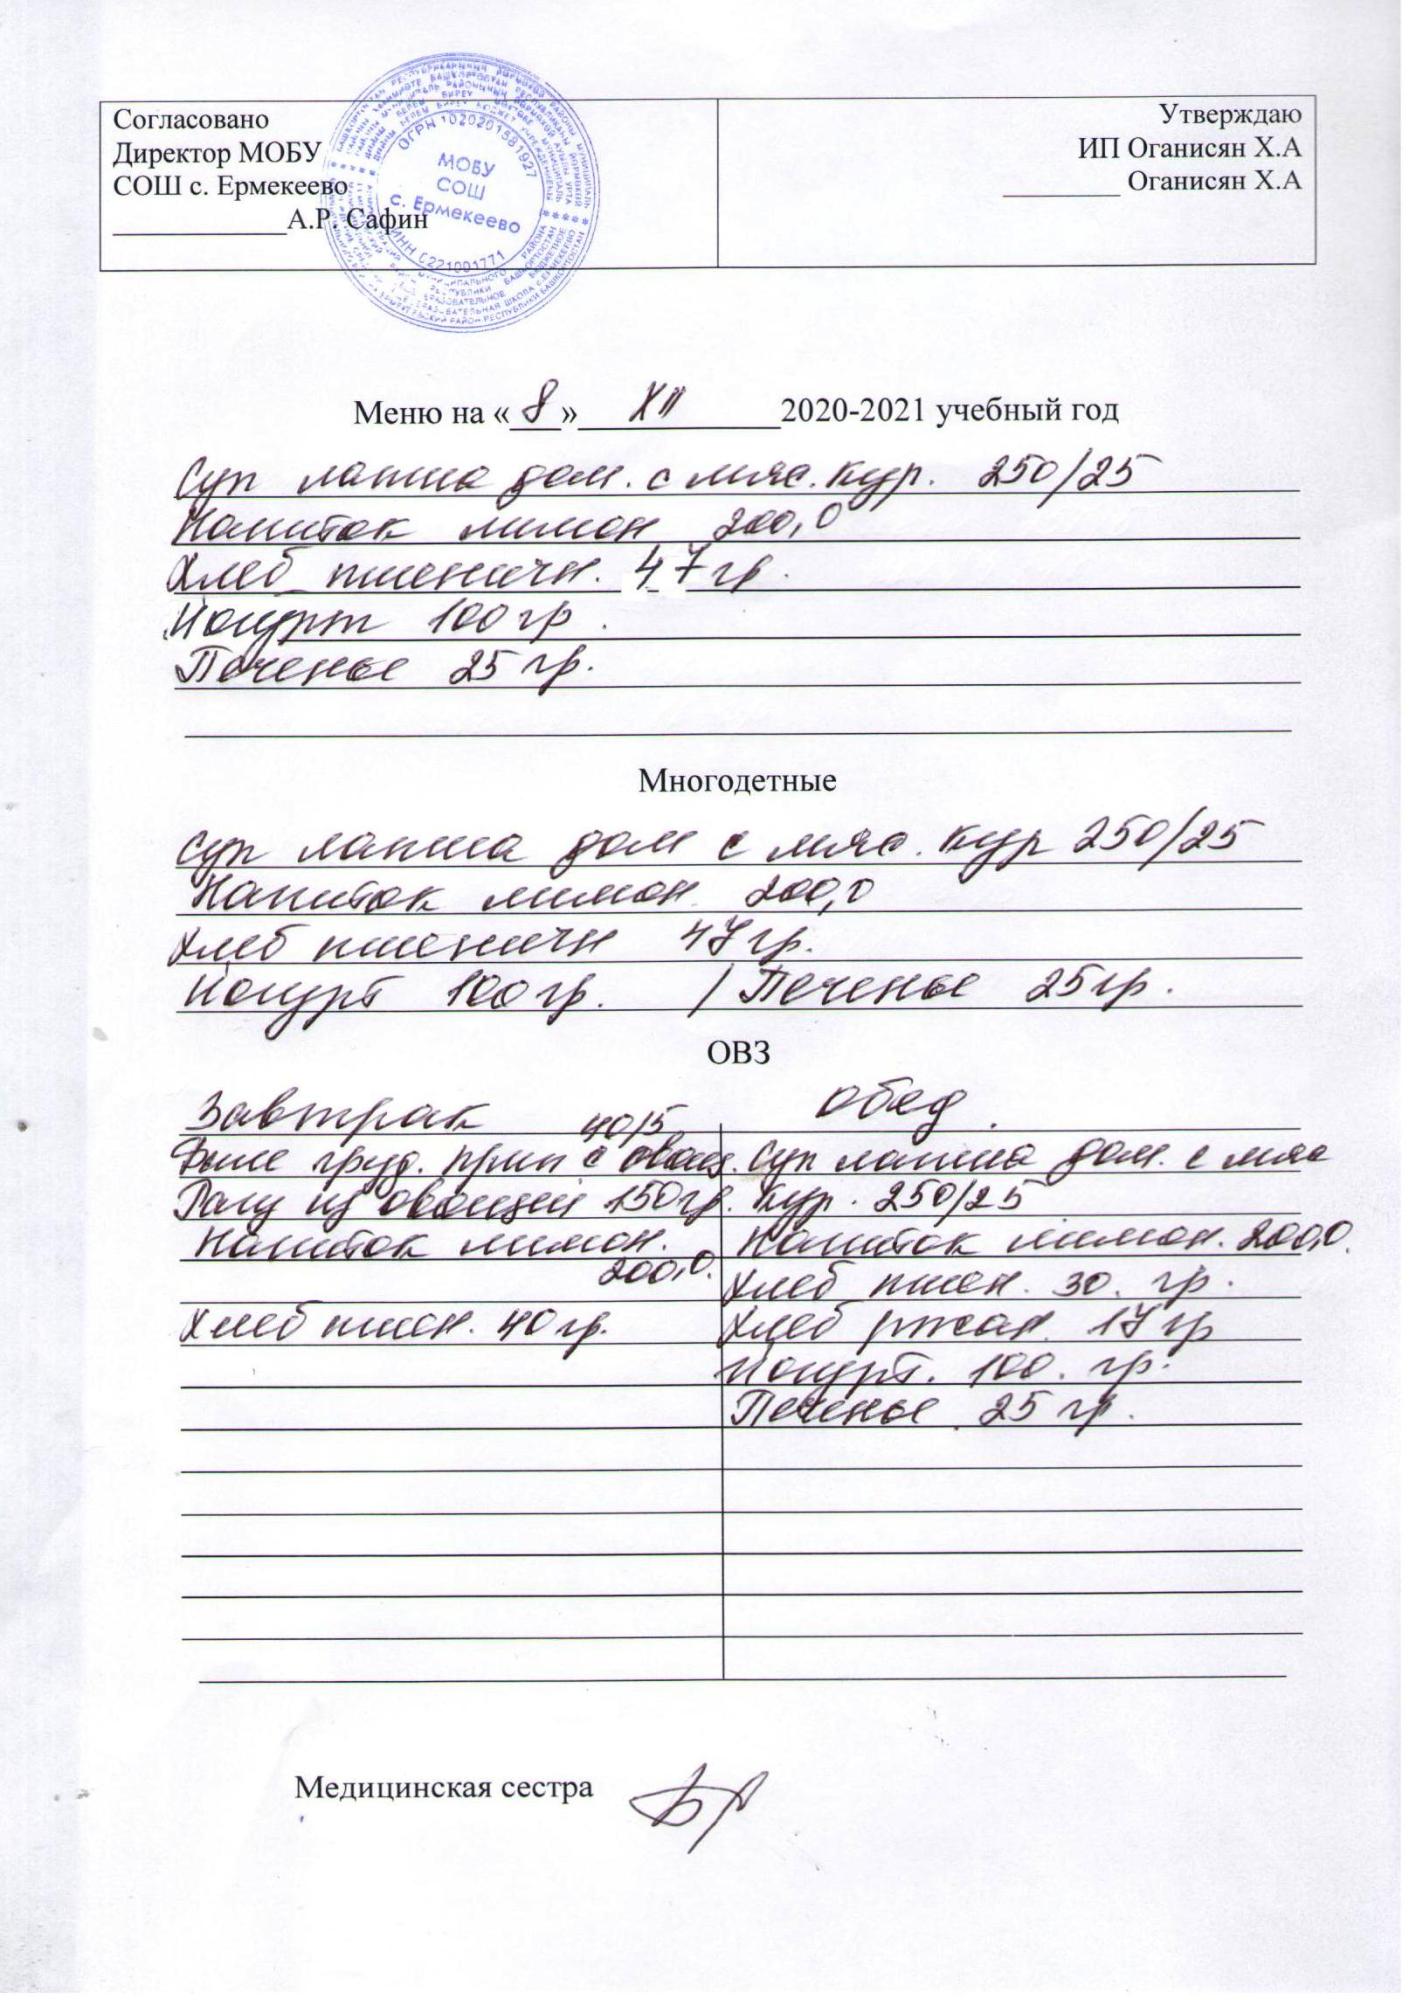 Согласовано
Директор МОБУ
СОШ с. Ермекеево
____________А.Р. Сафин
Утверждаю
ИП Оганисян Х.А
________ Оганисян Х.А
ОГРН 1020201881927
МОБУ
СОШ
с. Ермекеево
ИНН 0221001771
Меню на «8» XII 2020-2021 учебный год
Суп лапша дом. с мяс. кур. 250/25
Напиток лимон 200,0
Хлеб пшеничн. 47 гр.
Йогурт 100 гр.
Печенье 25 гр.
Многодетные
Суп лапша дом с мяс. кур 250/25
Напиток лимон. 200,0
Хлеб пшеничн 47 гр.
Йогурт 100 гр. / Печенье 25 гр.
ОВЗ
Завтрак
40/5
Филе груд. прип с овощ.
Рагу из овощей 150 гр.
Напиток лимон.
200,0.
Хлеб пшен. 40 гр.
Обед.
Суп лапша дом. с мяс
кур. 250/25
Напиток лимон. 200,0.
Хлеб пшен. 30. гр.
Хлеб ржан. 17 гр
Йогурт. 100. гр.
Печенье. 25 гр.
Медицинская сестра